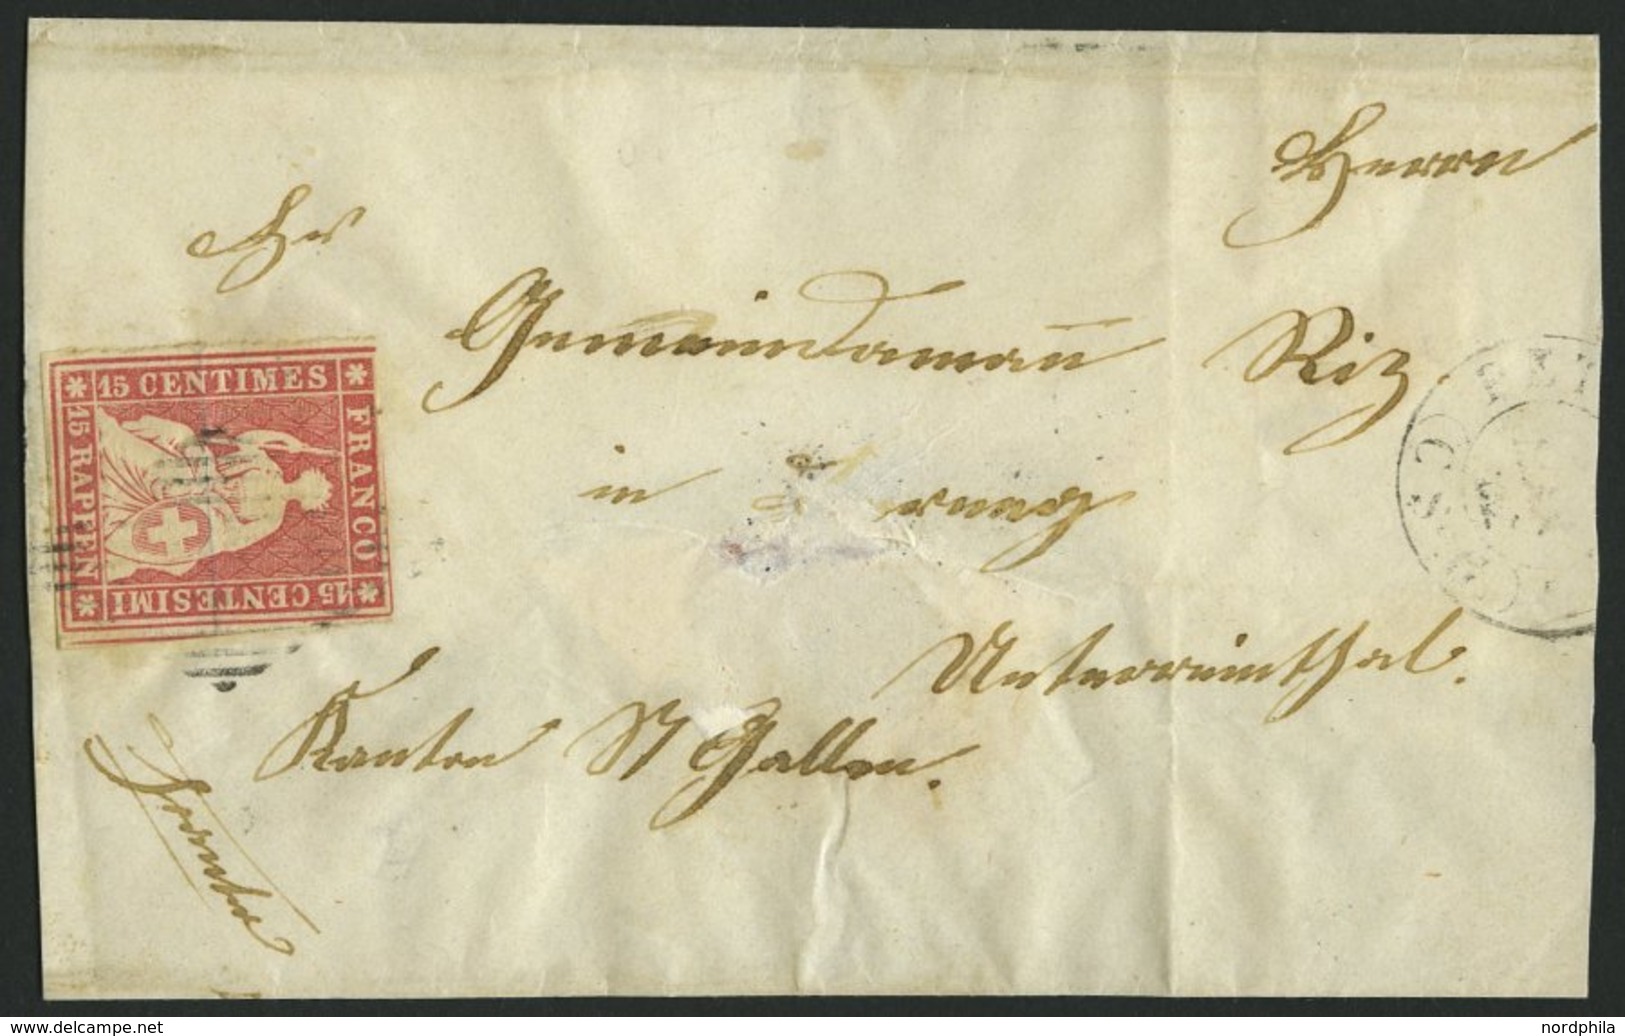 Herrn
Hr
Gemeindamañ Riz.
in
Unterreinthal.
Kanton St Gallen.
franko
15 CENTIMES
FRANCO
15 CENTESIMI
15 RAPPEN
delcampe.net
nordphila